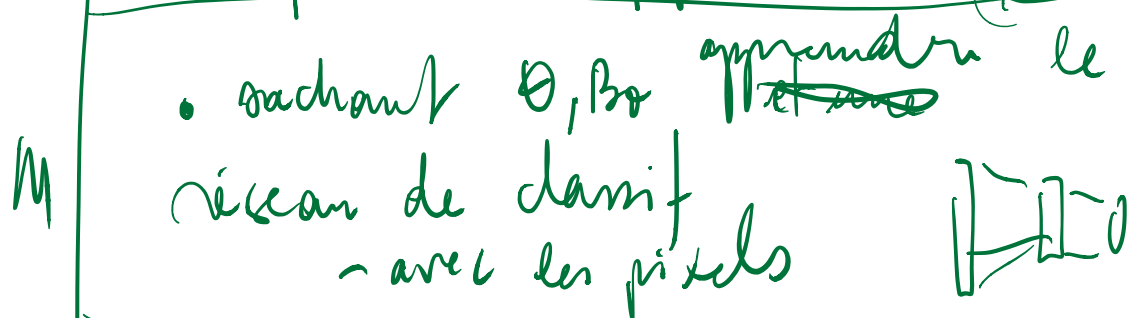 • sachant θ, Bθ apprendre le
M
réseau de classif
- avec les pixels